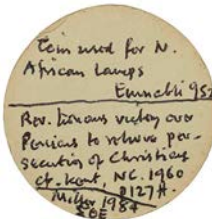 Coin used for N.
African lamps
Ennabli 952
Rev. Linous victory over
Persians to relieve per-
secution of Christians
cf. Kent, NC. 1960
p127 ff.
Miller 1984
SOE